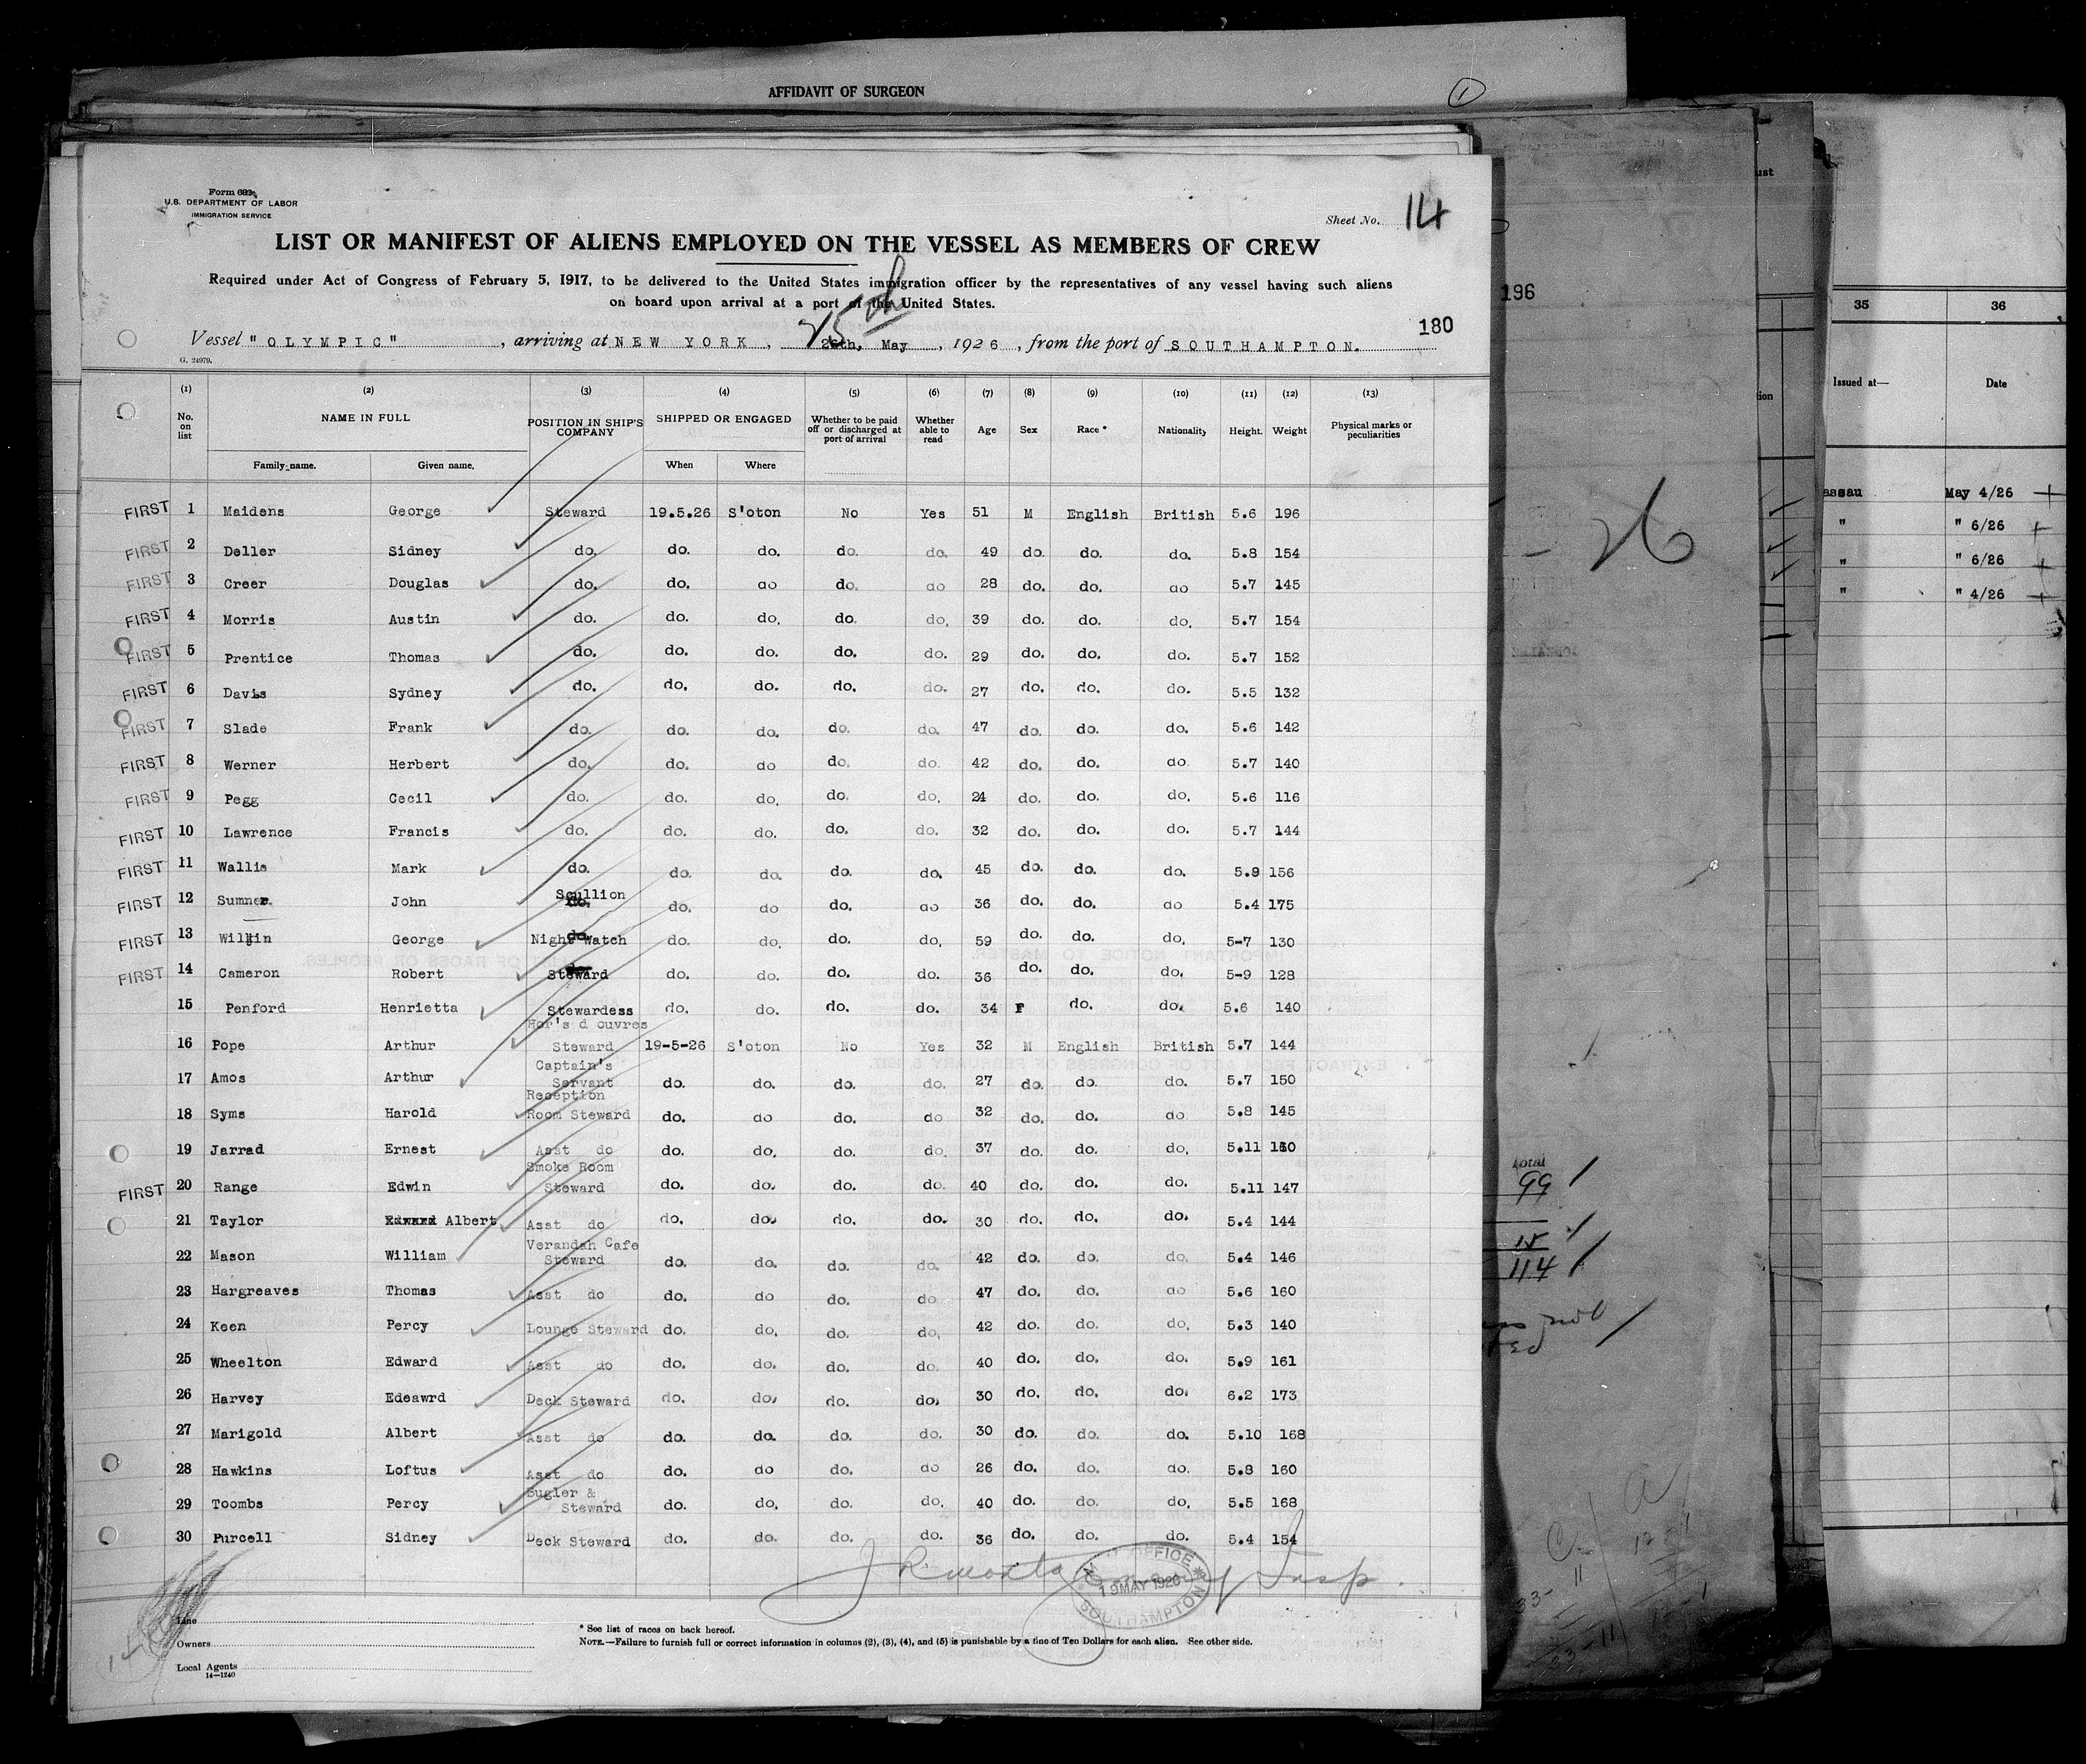 AFFIDAVIT OF SURGEON
1
U.S. DEPARTMENT OF LABOR
IMMIGRATION SERVICE
Sheet No. 14
LIST OR MANIFEST OF ALIENS EMPLOYED ON THE VESSEL AS MEMBERS OF CREW
Required under Act of Congress of February 5, 1917, to be delivered to the United States immigration officer by the representatives of any vessel having such aliens
on board upon arrival at a port of the United States.
180
25th
Vessel "OLYMPIC", arriving at NEW YORK, 26th, May, 1926, from the port of SOUTHAMPTON.
G. 24979.
(1) (2) (3) (4) (5) (6) (7) (8) (9) (10) (11) (12) (13)
No. on list NAME IN FULL POSITION IN SHIP'S COMPANY SHIPPED OR ENGAGED Whether to be paid off or discharged at port of arrival Whether able to read Age Sex Race* Nationality Height. Weight Physical marks or peculiarities
Family name. Given name. When Where
FIRST 1 Maidens George Steward 19.5.26 S'oton No Yes 51 M English British 5.6 196
FIRST 2 Deller Sidney do. do. do. do. do. 49 do. do. do. 5.8 154
FIRST 3 Creer Douglas do. do. do do. do 28 do. do. do 5.7 145
FIRST 4 Morris Austin do. do. do. do. do. 39 do. do. do. 5.7 154
FIRST 5 Prentice Thomas do. do. do. do. do. 29 do. do. do. 5.7 152
FIRST 6 Davis Sydney do. do. do. do. do. 27 do. do. do. 5.5 132
FIRST 7 Slade Frank do. do. do. do. do. 47 do. do. do. 5.6 142
FIRST 8 Werner Herbert do. do. do do. do. 42 do. do. do. 5.7 140
FIRST 9 Pegg Cecil do. do. do. do. do. 24 do. do. do. 5.6 116
FIRST 10 Lawrence Francis do. do. do. do. do. 32 do. do. do. 5.7 144
FIRST 11 Wallis Mark do. do. do. do. do. 45 do. do. do. 5.9 156
FIRST 12 Sumner John Scullion do. do do. do 36 do. do. do 5.4 175
FIRST 13 Wilkin George Night Watch do. do. do. do. 59 do. do. do. 5-7 130
FIRST 14 Cameron Robert Steward do. do. do. do. 36 do. do. do. 5-9 128
15 Penford Henrietta Stewardess do. do. do. do. 34 F do. do. 5.6 140
Hor's d ouvres
16 Pope Arthur Steward 19-5-26 S'oton No Yes 32 M English British 5.7 144
Captain's
17 Amos Arthur Servant do. do. do. do. 27 do. do. do. 5.7 150
Reception
18 Syms Harold Room Steward do. do do. do 32 do. do. do 5.8 145
19 Jarrad Ernest Asst do do. do. do. do. 37 do. do. do. 5.11
Smoke Room
FIRST 20 Range Edwin Steward do. do. do. do. 40 do. do. do. 5.11 147
21 Taylor Edward Albert Asst do do. do. do. do. 30 do. do. do. 5.4 144
Verandah Cafe
22 Mason William Steward do. do. do. do. 42 do. do. do. 5.4 146
23 Hargreaves Thomas Asst do do. do do. do 47 do. do. do 5.6 160
24 Keen Percy Lounge Steward do. do. do. do. 42 do. do. do. 5.3 140
25 Wheelton Edward Asst do do. do. do. do. 40 do. do. do. 5.9 161
26 Harvey Edeawrd Deck Steward do. do. do. do. 30 do. do. do. 6.2 173
27 Marigold Albert Asst do do. do. do. do. 30 do. do. do. 5.10 168
28 Hawkins Loftus Asst do do. do do. do 26 do. do. do. 5.8 160
Bugler &
29 Toombs Percy Steward do. do. do. do. 40 do. do. do. 5.5 168
30 Purcell Sidney Deck Steward do. do. do. do. 36 do. do. do. 5.4 154
Insp.
OFFICE
19 MAY 1926
SOUTHAMPTON
Line
Owners
Local Agents
14—1240
* See list of races on back hereof.
NOTE.—Failure to furnish full or correct information in columns (2), (3), (4), and (5) is punishable by a fine of Ten Dollars for each alien. See other side.
196
26
Total
99
15
114
35 36
Issued at— Date
assau May 4/26
" " 6/26
" " 6/26
" " 4/26